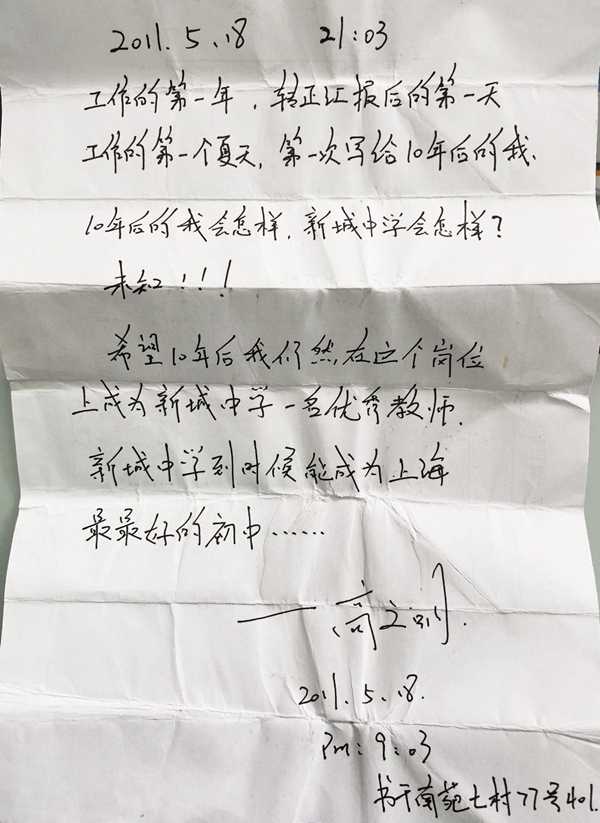 2011.5.18 21:03
工作的第一年,转正汇报后的第一天
工作的第一个夏天,第一次写给10年后的我.
10年后的我会怎样,新城中学会怎样?
未知!!!
希望10年后我仍然在这个岗位
上成为新城中学一名优秀教师.
新城中学到时候能成为上海
最最好的初中……
——高
2011.5.18.
Pm:9:03
书于南苑七村77号401.